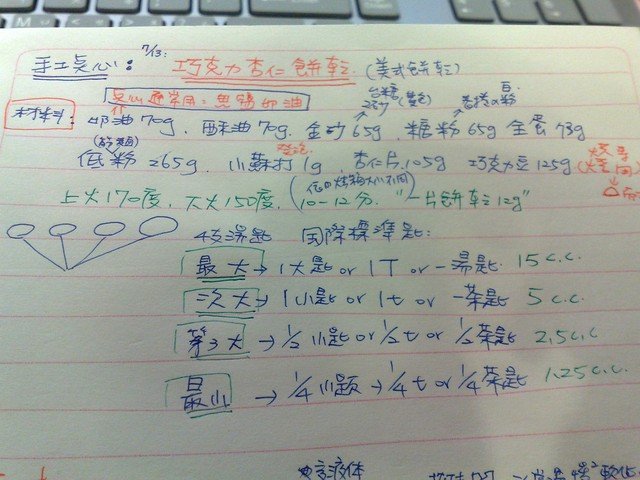 7/13:
手工点心: 巧克力杏仁餅乾 (美式餅乾)
点心通常用:無鹽奶油
台糖2砂(黃色)
材料: 奶油70g. 酥油70g. 金砂65g 糖粉65g 全蛋73g
(筋麵)
低粉265g. 小蘇打1g. 杏仁片105g 巧克力豆125g
上火170度. 下火150度. (10-12分. "一片餅乾12g"
4支湯匙 国際標準匙:
最大→1大匙or 1T or 一湯匙. 15 c.c.
次大→1小匙or 1t or 一茶匙 5 c.c.
第3大→1/2小匙or 1/2t or 1/2茶匙 2.5c.c
最小→1/4小題→1/4t or 1/4茶匙 1.25c.c.
液体